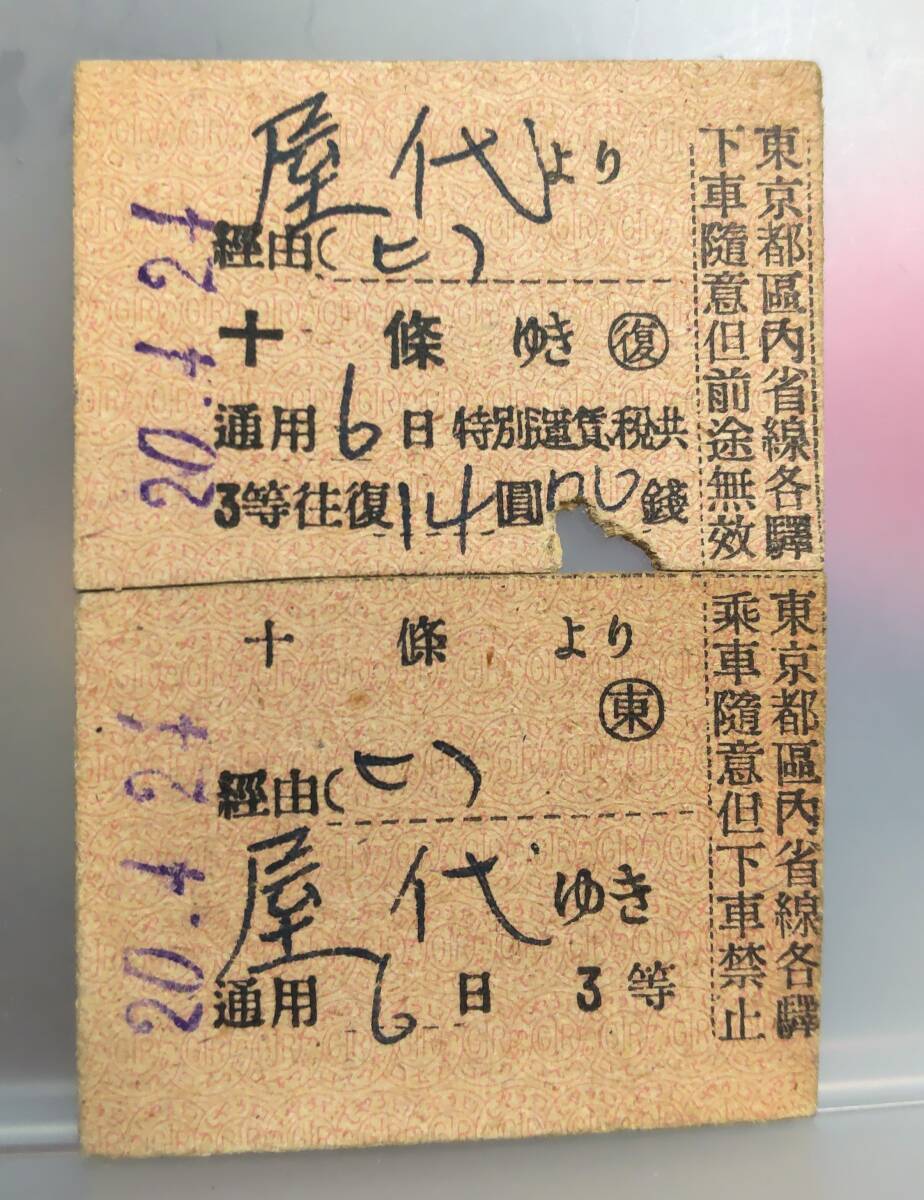 屋代より
經由(ヒ)
十條ゆき ㊝復
通用6日 特別運賃税共
3等往復14圓 錢
東京都區內省線各驛
下車隨意但前途無效
20.4.24
十條より
東
經由(ヒ)
屋代ゆき
通用6日 3等
東京都區內省線各驛
乘車隨意但下車禁止
20.4.24